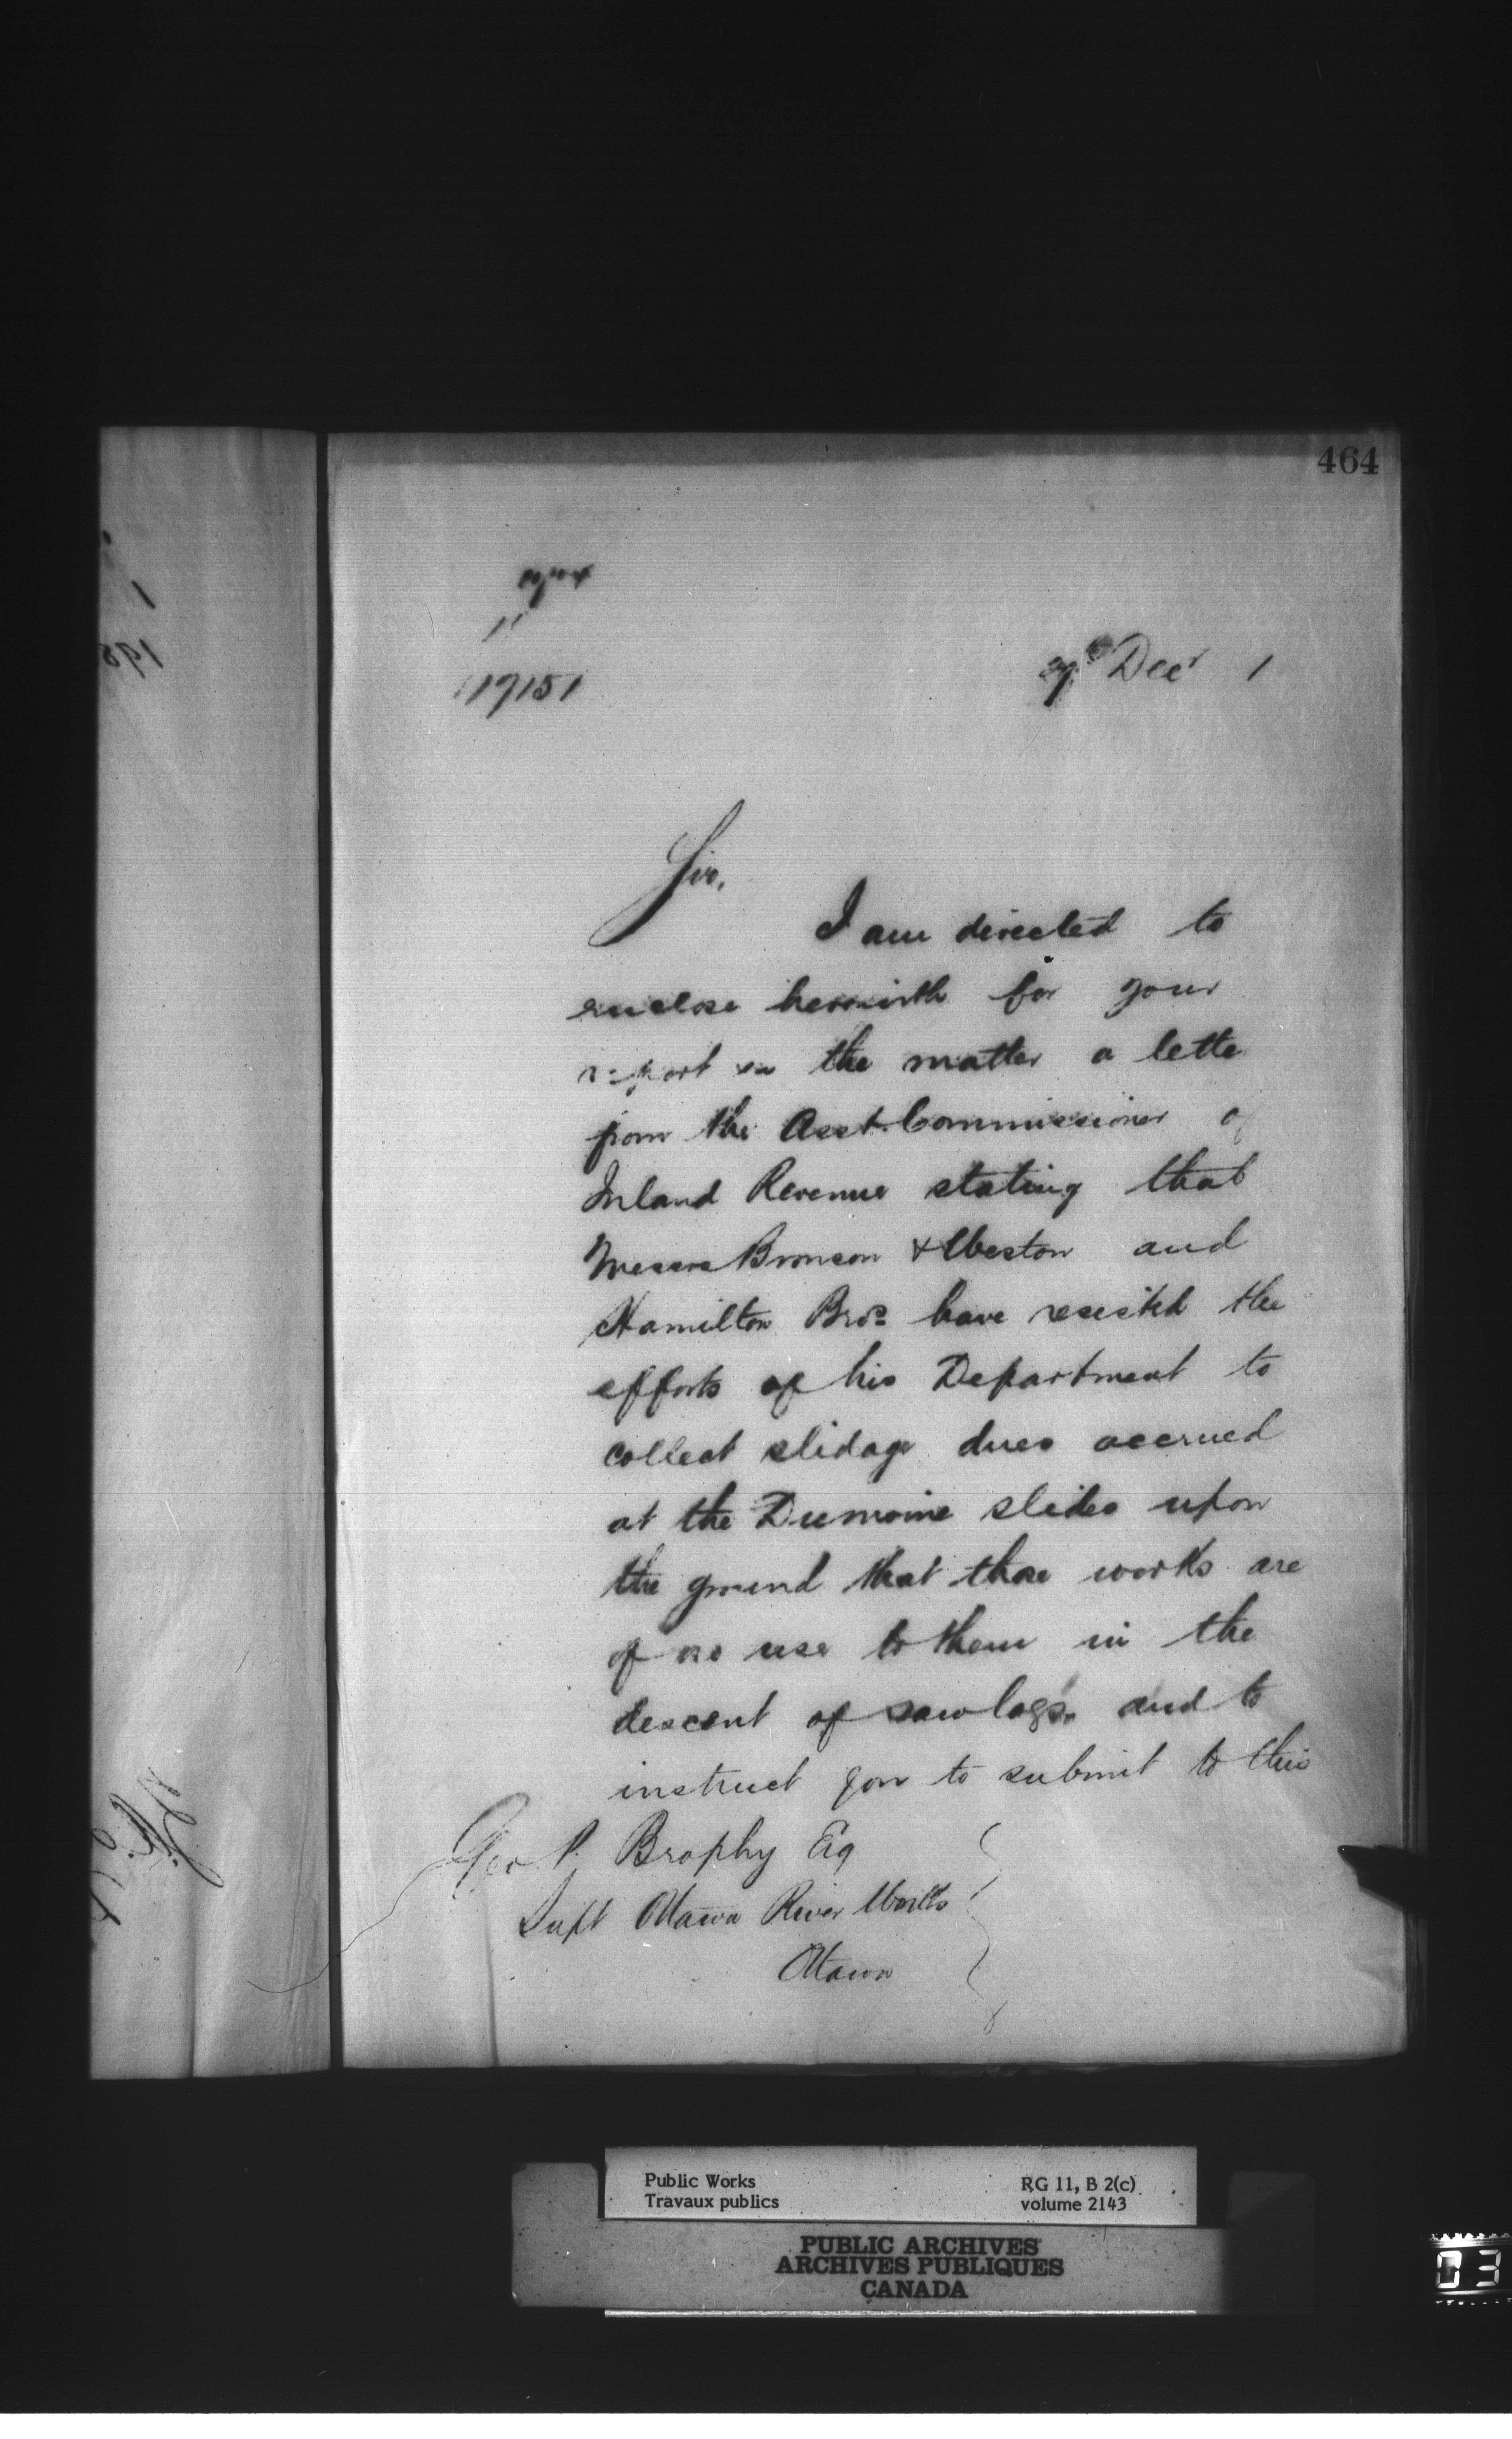 464
117151
Decr 1
Sir,
I am directed to
enclose herewith for your
report in the matter a lette
from the Asst. Commissioner of
Inland Revenue stating that
Messrs Bronson & Weston and
Hamilton Bros have resisted the
efforts of his Department to
collect slidage dues accrued
at the Dumoine slides upon
the ground that those works are
of no use to them in the
descent of sawlogs. and to
instruct you to submit to this
Geo P. Brophy Esq
Supt Ottawa River Works
Ottawa
Public Works
Travaux publics
RG 11, B 2(c)
volume 2143
PUBLIC ARCHIVES
ARCHIVES PUBLIQUES
CANADA
03